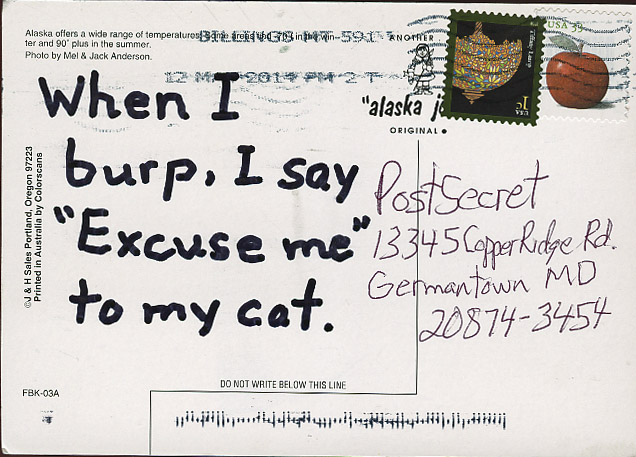 Alaska offers a wide range of temperatures
ter and 90° plus in the summer.
Photo by Mel & Jack Anderson.
BILLINGS MT 591
12 MAR 2014 PM 2 T
ANOTHER
"alaska
ORIGINAL •
Tiffany Lamp
USA
1¢
USA 39
When I
burp, I say
"Excuse me"
to my cat.
PostSecret
13345 Copper Ridge Rd.
Germantown MD
20874-3454
©J & H Sales Portland, Oregon 97223
Printed in Australia by Colorscans
DO NOT WRITE BELOW THIS LINE
FBK-03A